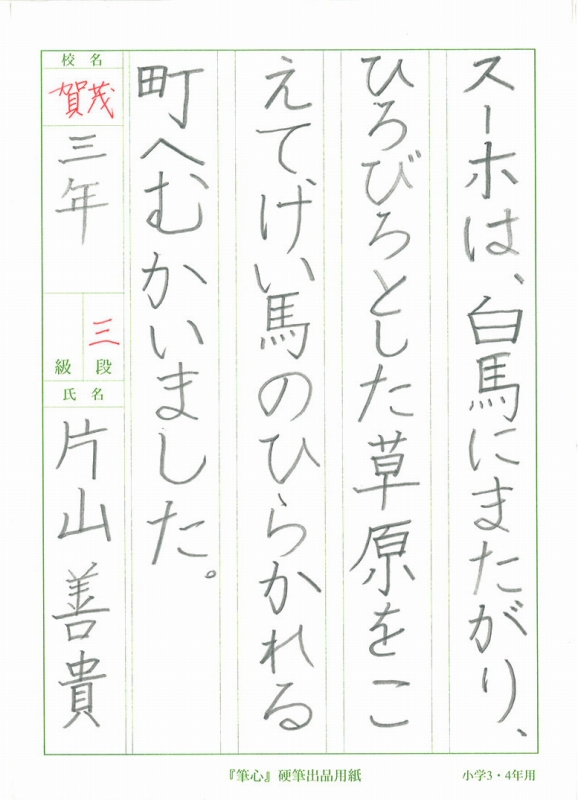 スーホは、白馬にまたがり、
ひろびろとした草原をこ
えてけい馬のひらかれる
町へむかいました。
校名
賀茂
三年
三
段
級
氏名
片山善貴
『筆心』硬筆出品用紙
小学3・4年用